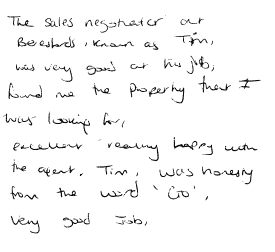 The sales negotiator at
Beresfords, known as Tim,
was very good at his job,
found me the Property that I
was looking for,
excellent really happy with
the agent. Tim, was honesty
from the word 'Go',
very good Job,